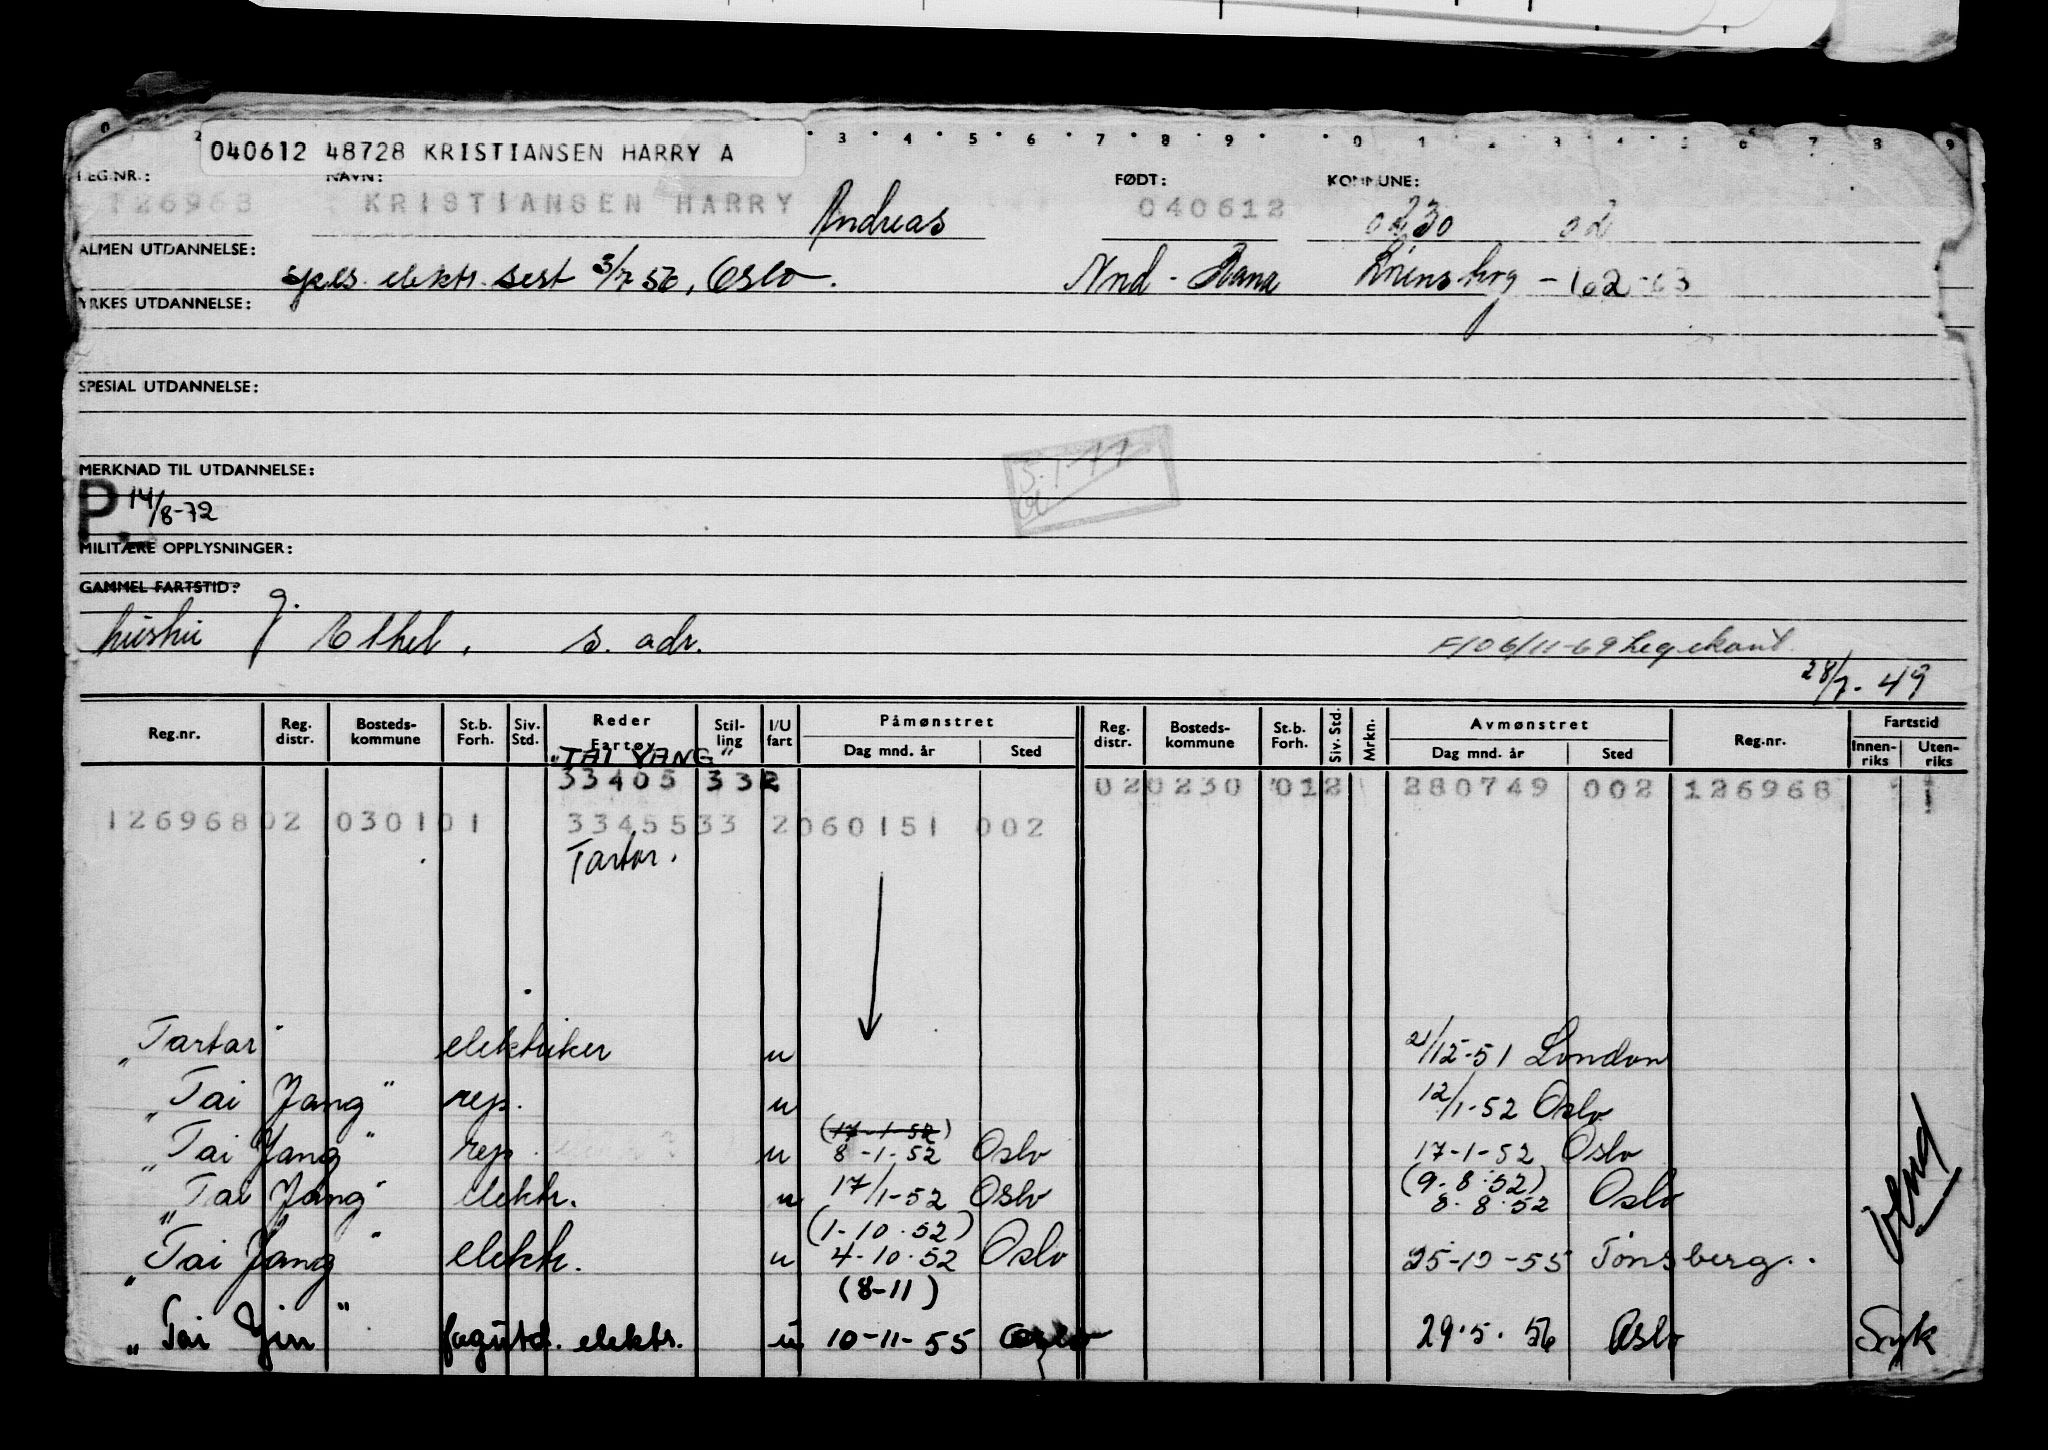 040612 48728 KRISTIANSEN HARRY A
REG.NR.: NAVN: FØDT: KOMMUNE:
126968 KRISTIANSEN HARRY Andreas 040612 0230 02
ALMEN UTDANNELSE:
spes. elektr. sert 3/7 56, Oslo. Nnd - Rana - 1-2-63
YRKES UTDANNELSE:
SPESIAL UTDANNELSE:
MERKNAD TIL UTDANNELSE:
P. 14/8-72
MILITÆRE OPPLYSNINGER:
GAMMEL FARTSTID?
hustru g. Ethel, s. adr.
28/7-49
Reg.nr. Reg. distr. Bosteds- kommune St.b. Forh. Siv. Std. Reder Fartøy Stil- ling I/U fart Påmønstret Dag mnd. år Sted Reg. distr. Bosteds- kommune St.b. Forh. Siv. Std. Mrkn. Avmønstret Dag mnd. år Sted Reg.nr. Fartstid Innen- riks Uten- riks
"TAI YANG"
33405 332 020230 012 280749 002 126968 1
126968 02 030101 33455 33 2 060151 002
Tartar.
"Tartar" elektriker u 21/12-51 London
"Tai Yang" rep. u 12/1-52 Oslo
(17-1-52)
"Tai Yang" rep. u 8-1-52 Oslo 17-1-52 Oslo
(9.8.52)
"Tai Yang" elektr. u 17/1-52 Oslo 8.8.52 Oslo
(1-10.52)
"Tai Yang" elektr. u 4-10.52 Oslo 25-10-55 Tønsberg.
(8-11)
"Tai Yin" fagutd. elektr. u 10-11-55 Oslo 29.5.56 Oslo Syk
Vend